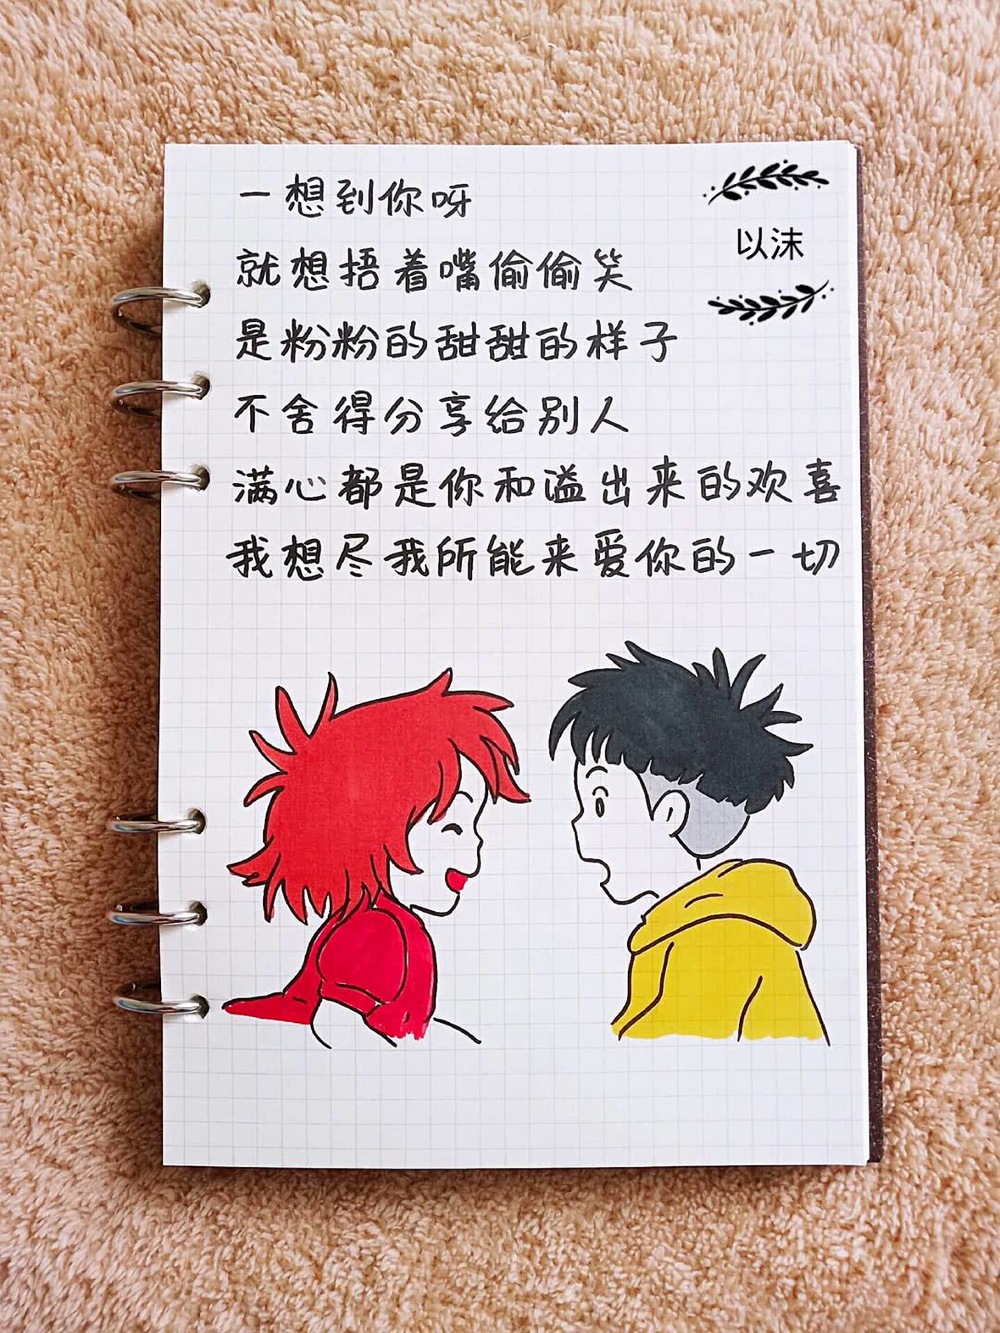 一想到你呀
以沫
就想捂着嘴偷偷笑
是粉粉的甜甜的样子
不舍得分享给别人
满心都是你和溢出来的欢喜
我想尽我所能来爱你的一切